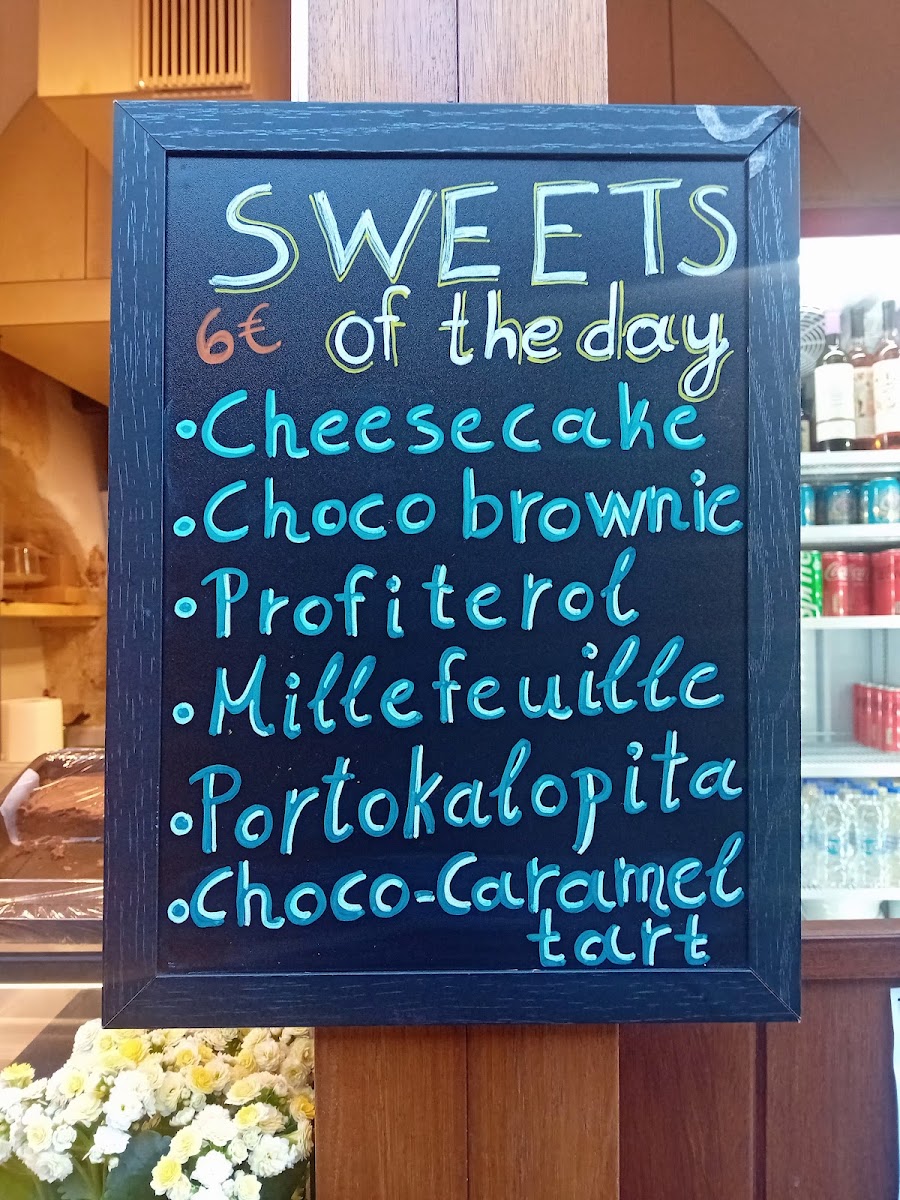 SWEETS
6€ of the day
•Cheesecake
•Choco brownie
•Profiterol
•Millefeuille
•Portokalopita
•Choco-Caramel
tart
Coca-Cola